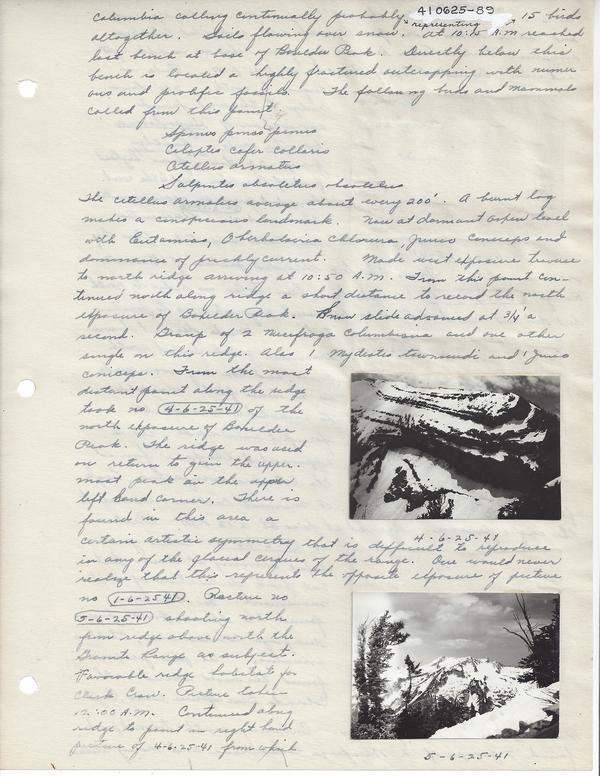 410625-89
Columbia calling continually probably representing 15 birds
altogether. Soils flowing over snow. At 10:15 A.M reached
last bench at base of Boulder Peak. Directly below this
bench is located a highly fractured outcropping with numer
ous and prolific fossils. The following birds and mammals
called from this point.
Spinus pinus pinus
Colaptes cafer collaris
Citellus armatus
Salpinctes obsoletus obsoletus
The citellus armatus average about every 200'. A burnt log
makes a conspicuous landmark. Now at dormant aspen level
with Eutamias, Oberholseria Chlorura, Junco Caniceps and
dominance of prickly currant. Made west exposure traverse
to north ridge arriving at 10:50 A.M. From this point con-
tinued north along ridge a short distance to record the north
exposure of Boulder Peak. slide advanced at 3/4 a
second. Group of 2 Nucifraga Columbiana and one other
single on this ridge. Also 1 Myadestes townsendi and 1 Junco
caniceps. From the most
distant point along the ridge
took no. 4-6-25-41 of the
north exposure of Boulder
Peak. The ridge was used
on return to gain the upper.
most peak on the upper
left hand corner. There is
found in this area a
4-6-25-41
certain artistic symmetry that is difficult to reproduce
in any of the glacial cirques of the range. One would never
realize that this represents the opposite exposure of picture
no 1-6-25-41. Picture no
5-6-25-41 shooting north
from ridge above with the
Granite Range as subject.
Favorable ridge habitat for
Clark Crow. Picture taken
12:00 A.M. Continued along
ridge to point in right hand
picture of 4-6-25-41 from which
5-6-25-41